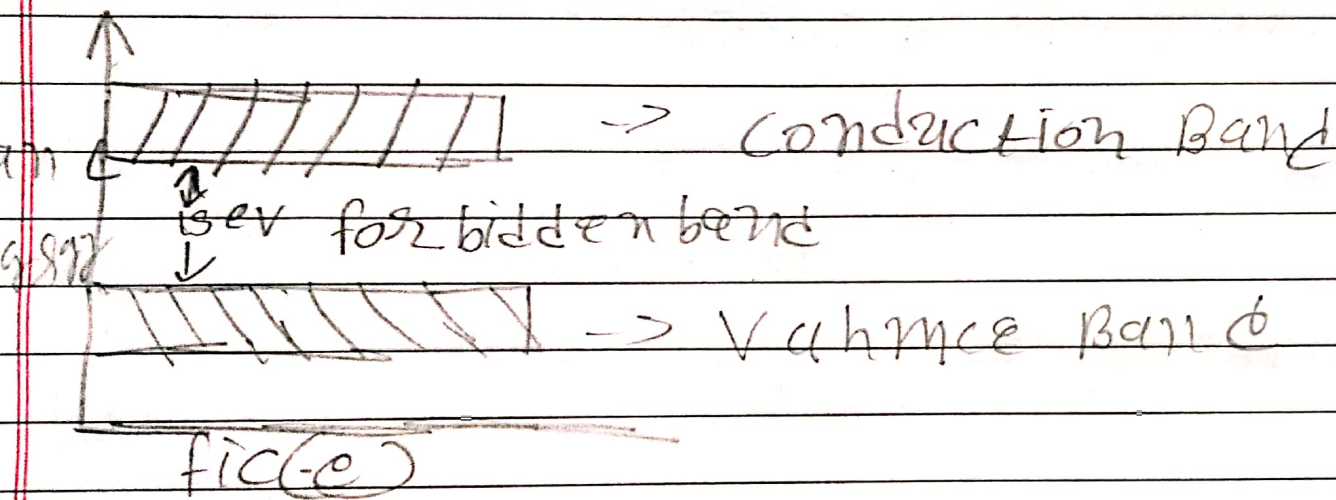 -> Conduction Band
isev forbidden band
-> Vahmce Band
fic(-e)